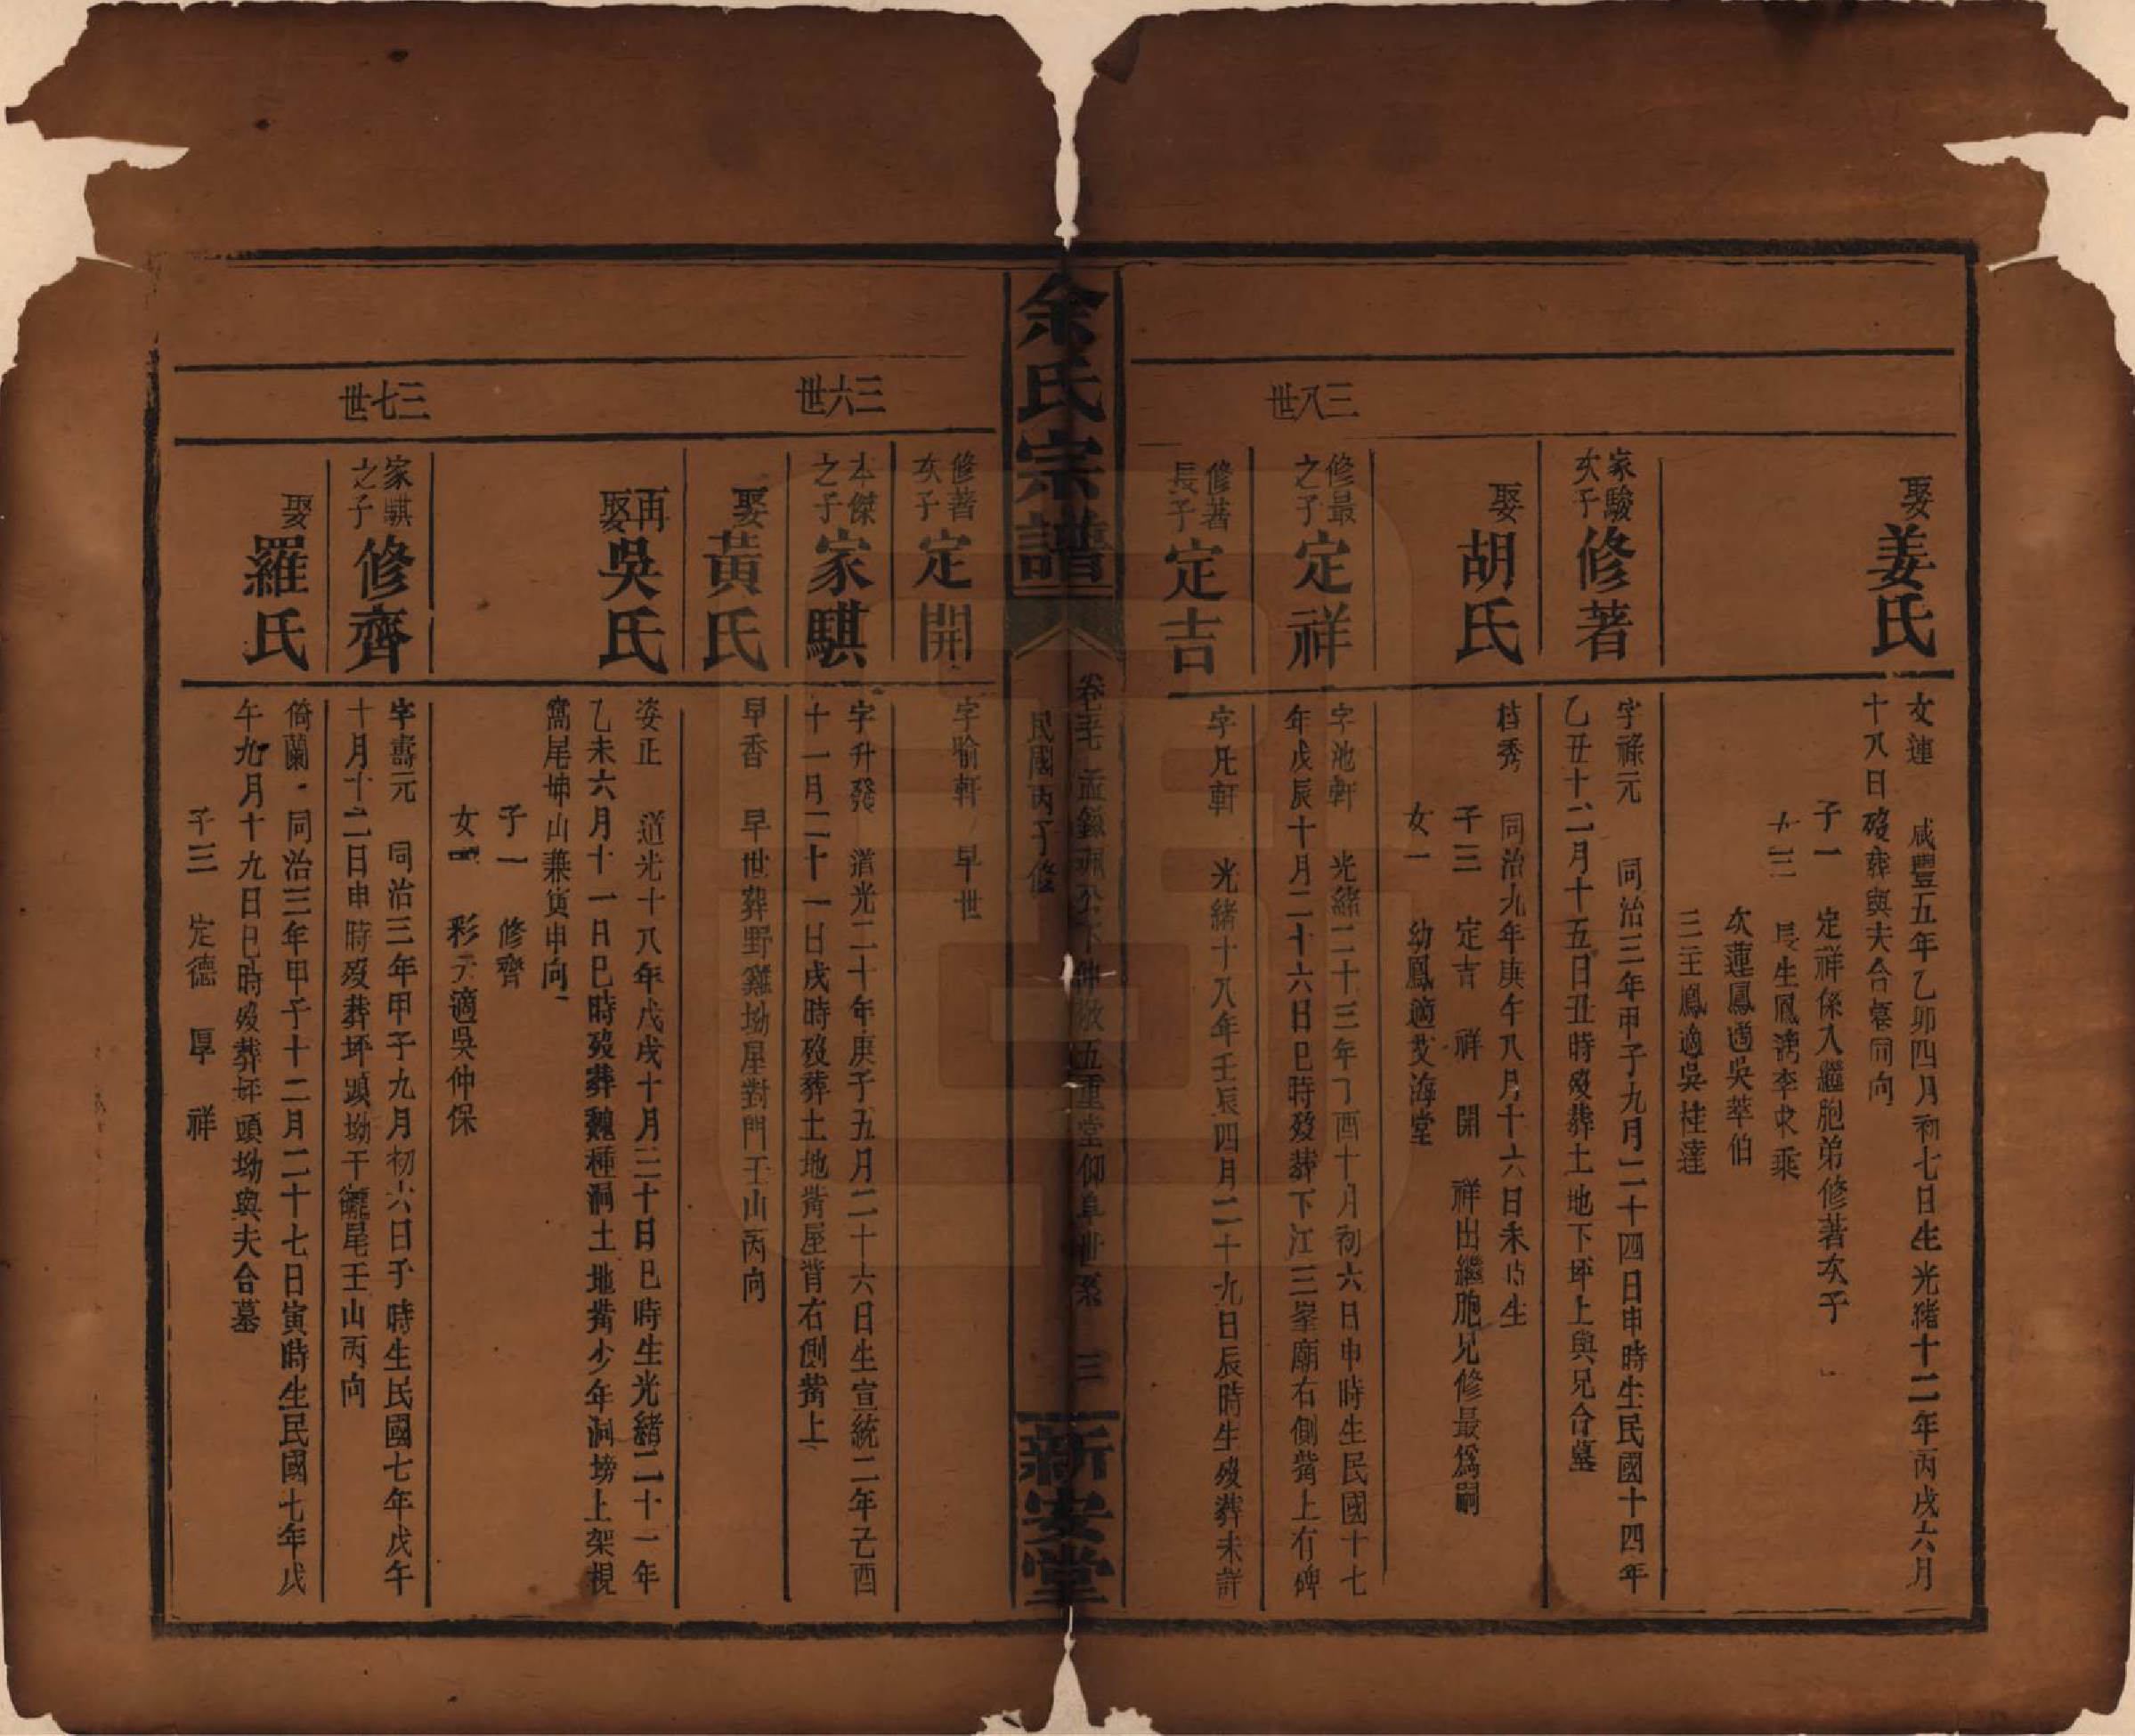 娶姜氏
女連　咸豐五年乙卯四月初七日生光緒十二年丙戌六月
十八日歿葬與夫合冢同向
子一　定祥係入繼胞弟修著次子
女三　長生鳳適李求乘
次蓮鳳適吳萃伯
三玉鳳適吳桂達
家駿次子修著
字祿元　同治三年甲子九月二十四日申時生民國十四年
乙丑十二月十五日丑時歿葬土地下坪上與兄合墓
娶胡氏
桂秀　同治九年庚午八月十六日未時生
子三　定吉　祥　開　祥出繼胞兄修最為嗣
女一　幼鳳適艾海堂
三八世
修最之子定祥
字池軒　光緒二十三年丁酉十月初六日申時生民國十七
年戊辰十月二十六日巳時歿葬下江三峯廟右側嘴上有碑
修著長子定吉
字凡軒　光緒十八年壬辰四月二十九日辰時生歿葬未詳
余氏宗譜
民國丙子修
五重堂仰阜世系　三
新安堂
修著次子定開
字喻軒　早世
三六世
本傑之子家騏
字升發　道光二十年庚子五月二十六日生宣統二年乙酉
十一月二十一日戌時歿葬土地嘴屋背右側嘴上
娶黃氏
早香　早世葬野雞坳屋對門壬山丙向
再娶吳氏
姿正　道光十八年戊戌十月三十日巳時生光緒二十一年
乙未六月十一日巳時歿葬魏種洞土地嘴少年洞塝上架梘
窩尾坤山兼寅申向
子一　修齊
女　彩元適吳仲保
三七世
家騏之子修齊
字壽元　同治三年甲子九月初六日子時生民國七年戊午
十月十二日申時歿葬坪頭坳干尾壬山丙向
娶羅氏
倚蘭　同治三年甲子十二月二十七日寅時生民國七年戊
午九月十九日巳時歿葬坪頭坳與夫合墓
子三　定德　厚　祥